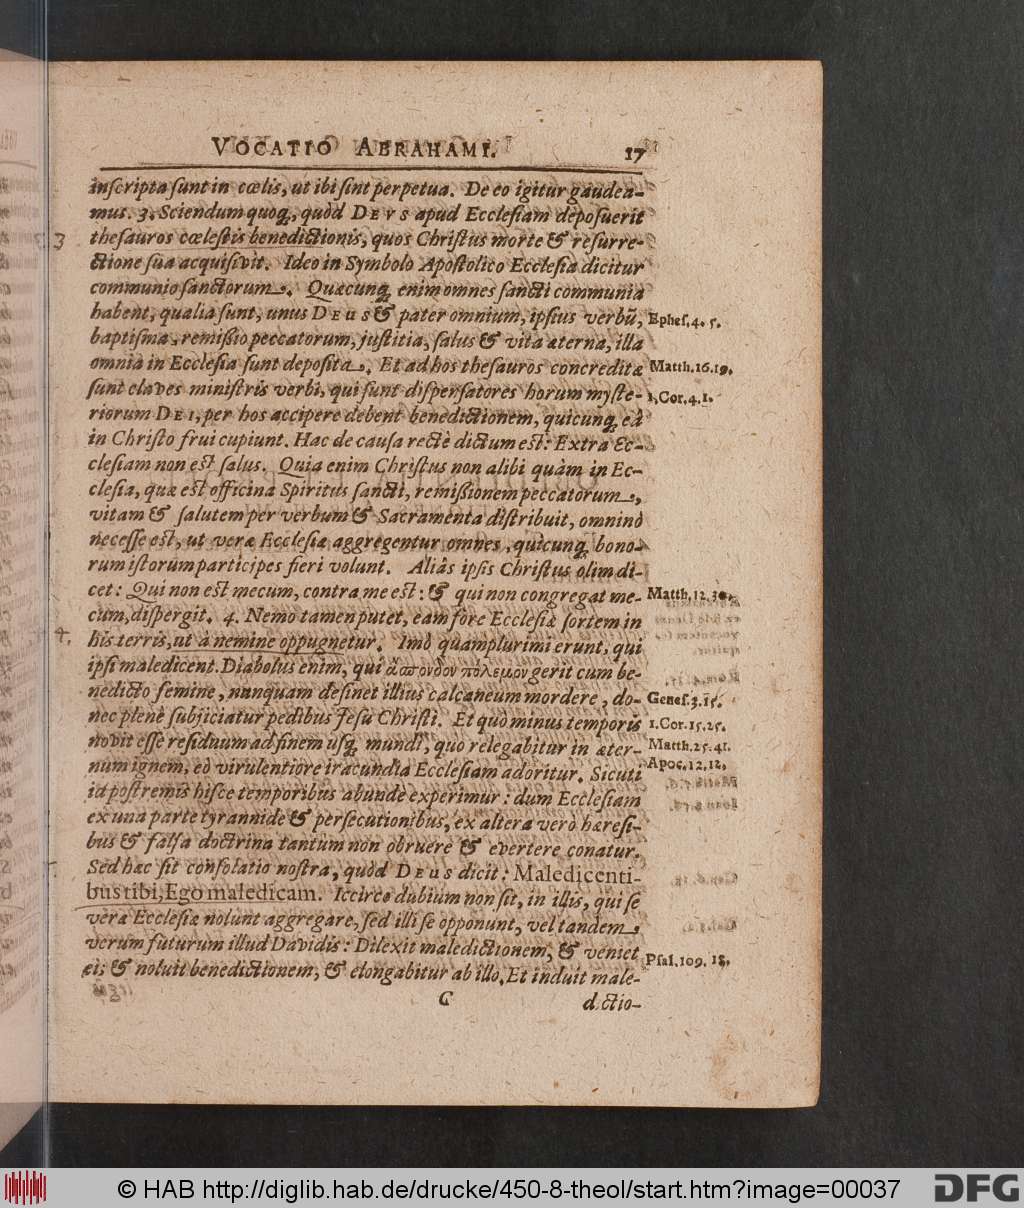 VOCATIO ABRAHAMI. 17
inſcripta ſunt in cœlis, ut ibi ſint perpetua. De eo igitur gaudea-
mus. 3. Sciendum quoq́, quòd DEVS apud Eccleſiam depoſuerit
3
theſauros cœleſtis benedictionis, quos Chriſtus morte & reſurre-
ctione ſua acquiſivit. Ideo in Symbolo Apoſtolico Eccleſia dicitur
communio ſanctorum. Quæcunq́ enim omnes ſancti communia
habent, qualia ſunt, unus DEUS & pater omnium, ipſius verbũ, Epheſ. 4. 5.
baptiſma, remiſſio peccatorum, juſtitia, ſalus & vita æterna, illa
omnia in Eccleſia ſunt depoſita. Et ad hos theſauros concreditæ Matth. 16. 19.
ſunt claves miniſtris verbi, qui ſunt diſpenſatores horum myſte- 1. Cor. 4. 1.
riorum DEI, per hos accipere debent benedictionem, quicunq́ eâ
in Chriſto frui cupiunt. Hac de cauſa rectè dictum eſt: Extra Ec-
cleſiam non eſt ſalus. Quia enim Chriſtus non alibi quàm in Ec-
cleſia, quæ eſt officina Spiritus ſancti, remiſſionem peccatorum,
vitam & ſalutem per verbum & Sacramenta diſtribuit, omninò
neceſſe eſt, ut veræ Eccleſiæ aggregentur omnes, quicunq́ bono-
rum iſtorum participes fieri volunt. Aliàs ipſis Chriſtus olim di-
cet: Qui non eſt mecum, contra me eſt: & qui non congregat me- Matth. 12. 30.
cum, diſpergit. 4. Nemo tamen putet, eam fore Eccleſiæ ſortem in
4.
his terris, ut à nemine oppugnetur. Imò quamplurimi erunt, qui
ipſi maledicent. Diabolus enim, qui ἄσπονδον πόλεμον gerit cum be-
nedicto ſemine, nunquam deſinet illius calcaneum mordere, do- Geneſ. 3. 15.
nec plenè ſubjiciatur pedibus Jeſu Chriſti. Et quò minus temporis 1. Cor. 15. 25.
novit eſſe reſiduum ad finem uſq́ mundi, quo relegabitur in æter- Matth. 25. 41.
num ignem, eò virulentiore iracundia Eccleſiam adoritur. Sicuti Apoc. 12. 12.
id poſtremis hiſce temporibus abundè experimur: dum Eccleſiam
ex una parte tyrannide & perſecutionibus, ex altera verò hæreſi-
bus & falſa doctrina tantum non obruere & evertere conatur.
Sed hæc ſit conſolatio noſtra, quòd DEUS dicit: Maledicenti-
bus tibi, Ego maledicam. Iccirco dubium non ſit, in illis, qui ſe
veræ Eccleſiæ nolunt aggregare, ſed illi ſe opponunt, vel tandem,
verum futurum illud Davidis: Dilexit maledictionem, & veniet
ei; & noluit benedictionem, & elongabitur ab illo. Et induit male- Pſal. 109. 18.
C dictio-
© HAB http://diglib.hab.de/drucke/450-8-theol/start.htm?image=00037 DFG